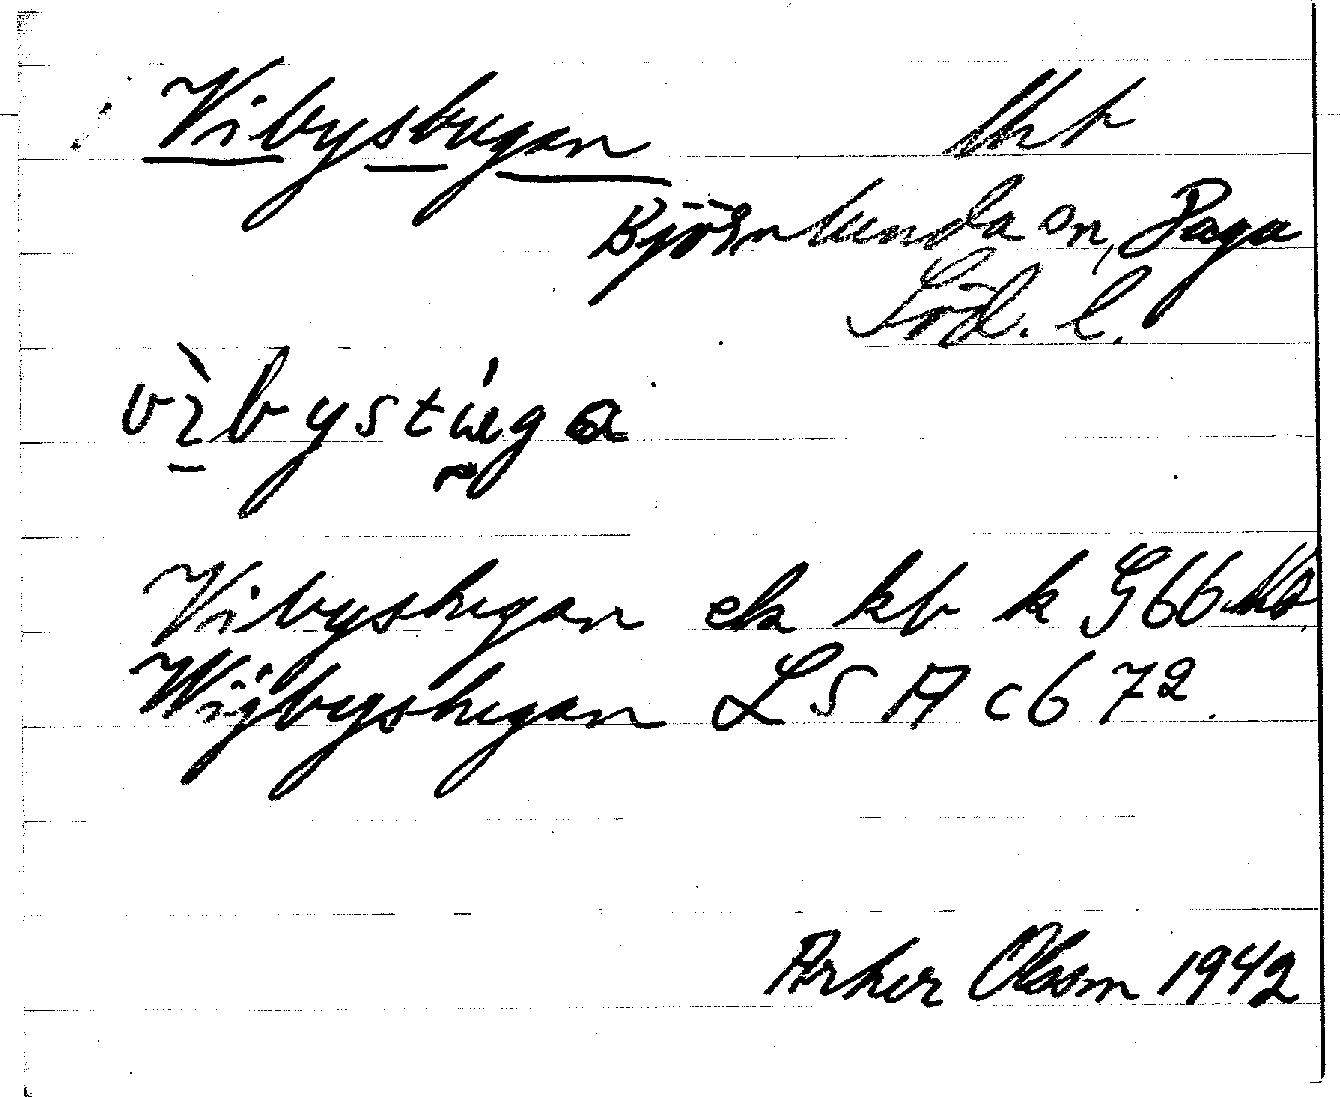 Vibystugan
Björnlunda sn, Daga
Söd. l.
vibystuga
Vibystugan ek kb k G66
Wijbystugan LSA c6 72.
Arher Olsson 1942